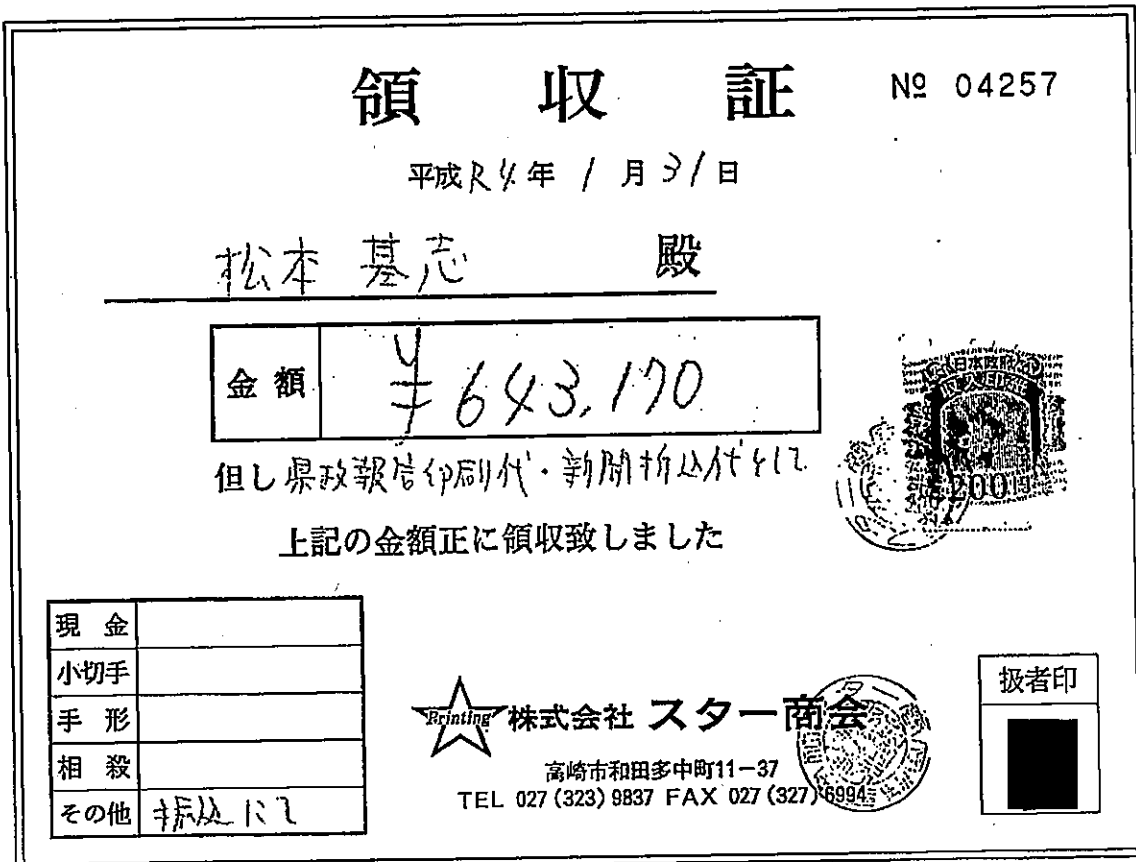 領収証 № 04257
平成R4年1月31日
松本 基志 殿
金額 ¥643,170
但し県政報告印刷代・新聞折込代として
上記の金額正に領収致しました
現金
小切手
手形
相殺
その他 振込にて
Printing 株式会社 スター商会
高崎市和田多中町11-37
TEL 027(323)9837 FAX 027(327)6994
扱者印
日本政府
200